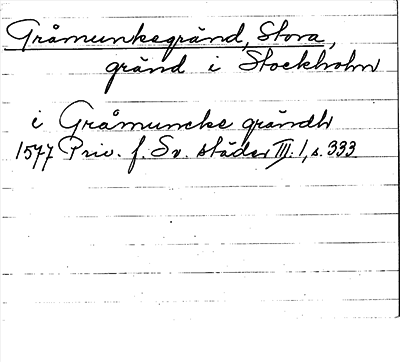 Gråmunkegränd, Stora,
gränd i Stockholm
i Gråmuncke grändh
1577 Priv. f. Sv. städer III: 1, s. 333